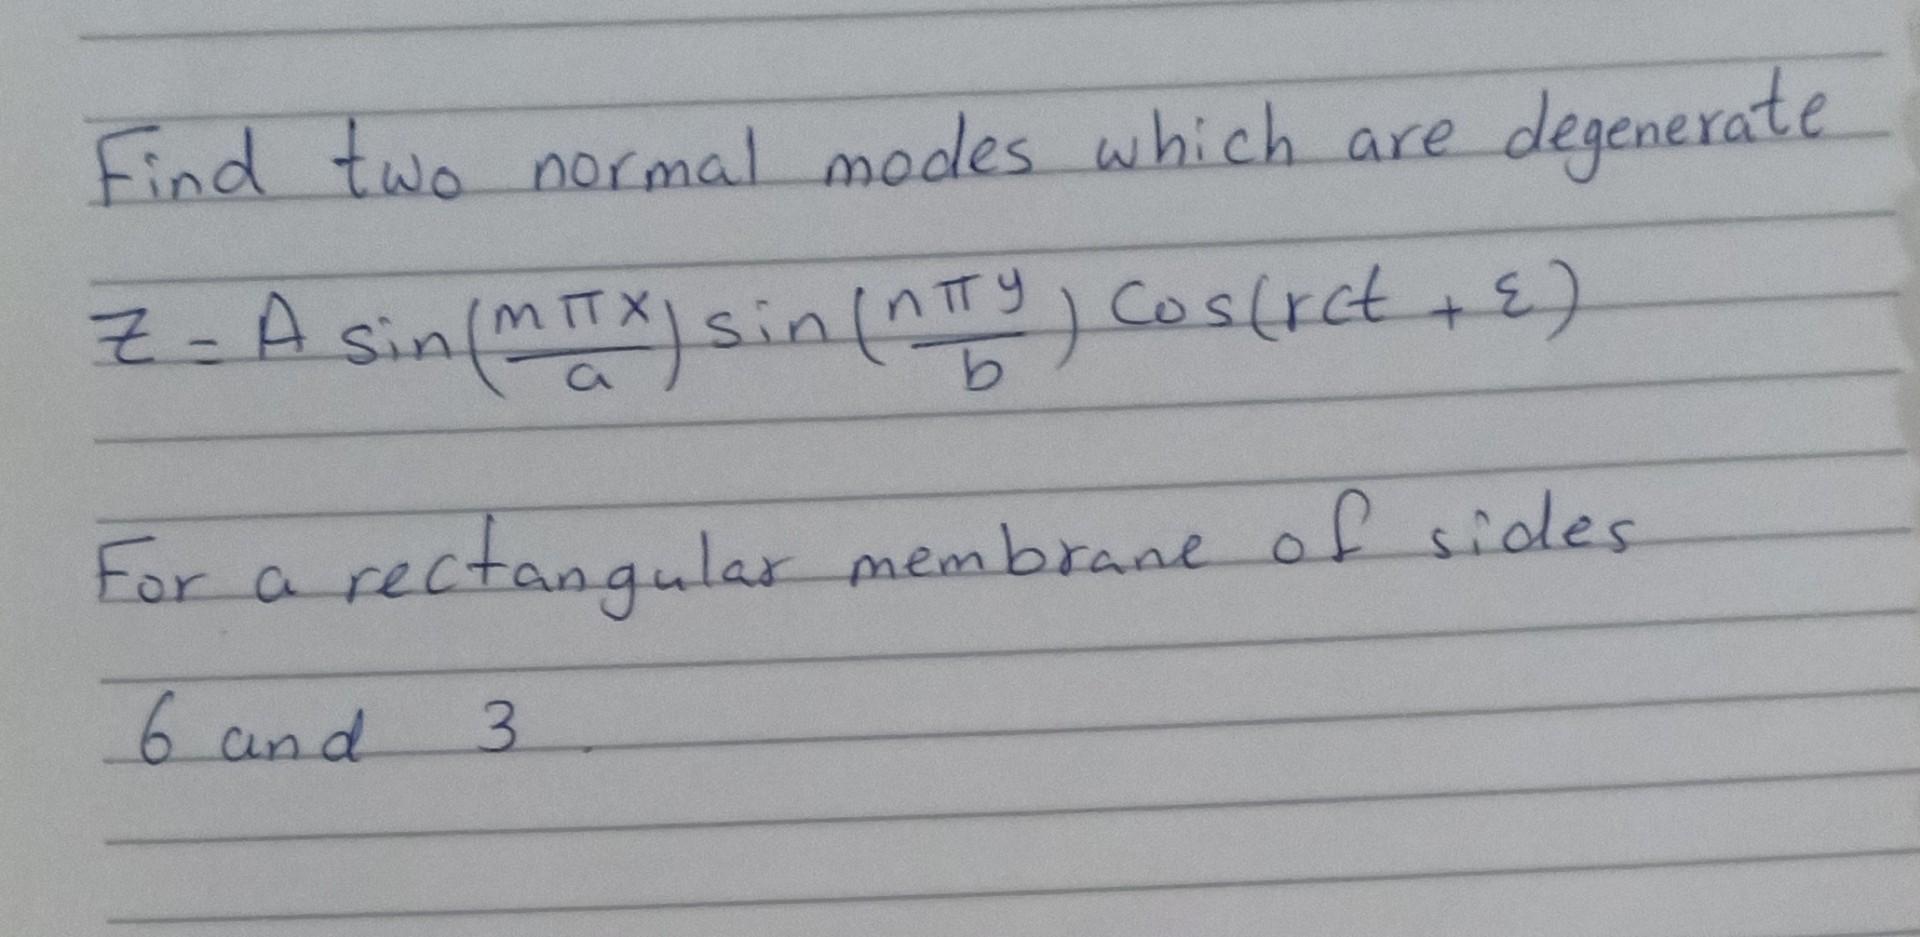 Find two normal modes which are degenerate
Z = A sin(mπx/a) sin(nπy/b) cos(rct + ε)
For a rectangular membrane of sides
6 and 3.